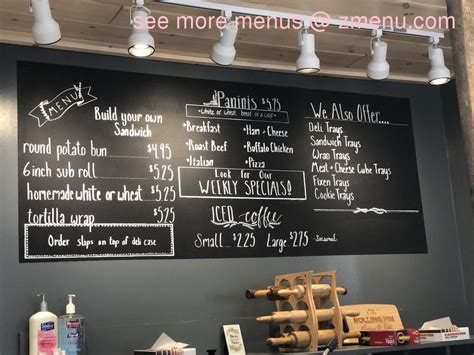 see more menus @ zmenu.com
MENU
Build your own
Sandwich
round potato bun $4.95
6inch sub roll $5.25
homemade white or wheat $5.25
tortilla wrap $5.25
Order slips on top of deli case
Paninis $5.75
white or wheat bread or a wrap
•Breakfast •Ham + Cheese
•Roast Beef •Buffalo Chicken
•Italian •Pizza
Look for Our
WEEKLY SPECIALS!
ICED coffee
Small... $2.25 Large $2.75 Seasonal
We Also Offer....
Deli Trays
Sandwich Trays
Wrap Trays
Meat + Cheese Cube Trays
Fixen Trays
Cookie Trays
ROLLING PIN